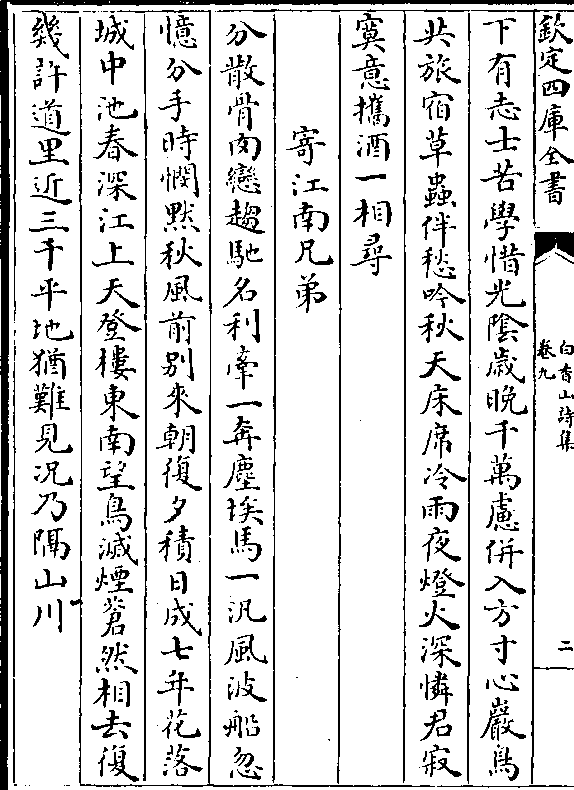 欽定四庫全書
白香山詩集
卷九
二
下有志士苦學惜光陰歲晚千萬慮併入方寸心巖鳥
共旅宿草蟲伴愁吟秋天床席冷雨夜燈火深憐君寂
寞意攜酒一相尋
寄江南兄弟
分散骨肉戀趨馳名利牽一奔塵埃馬一汎風波船忽
憶分手時憫默秋風前别來朝復夕積日成七年花落
城中池春深江上天登樓東南望鳥滅煙蒼然相去復
幾許道里近三千平地猶難見况乃隔山川